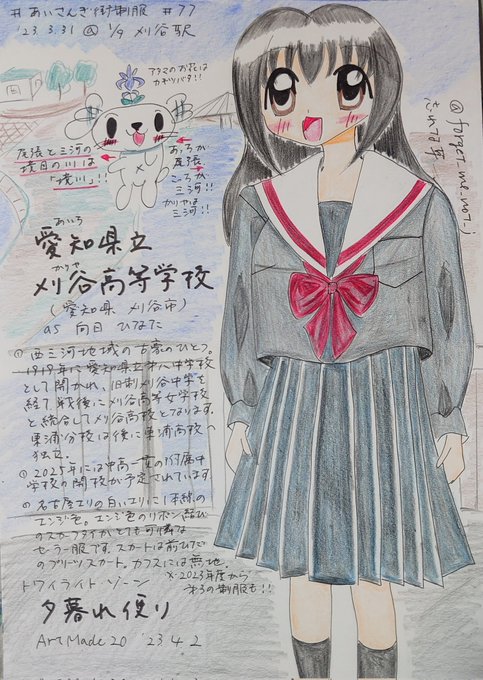 #あいさんぎ街制服 #77
'23.3.31 @ 1/9 刈谷駅
アタマのお花は
カキツバタ!!
尾張と三河の
境目の川は
「境川」!!
おっちが
尾張
こっちが
三河!!
かりやは
三河!!
@forget_me_not_j
あいち
愛知県立
かりや
刈谷高等学校
(愛知県 刈谷市)
as 向日 ひなた
① 西三河地域の古豪のひとつ。
1919年に愛知県立第八中学校
として開かれ、旧制刈谷中学を
経て、戦後に刈谷高等女学校
と統合して刈谷高校となります。
東浦分校は後に東浦高校へ
独立。
② 2025年には中高一貫の附属中
学校の開校が予定されています
③ 名古屋エリの白いエリに1本線の
エンジ色。エンジ色のリボン結び
のスカーフタイがとても可憐な
セーラー服です。スカートは前ひだ
のプリーツスカート。カフスには無地。
※2023年度から
第3の制服も!!
トワイライト・ゾーン
夕暮れ便り
Art Made 20 '23.4.2